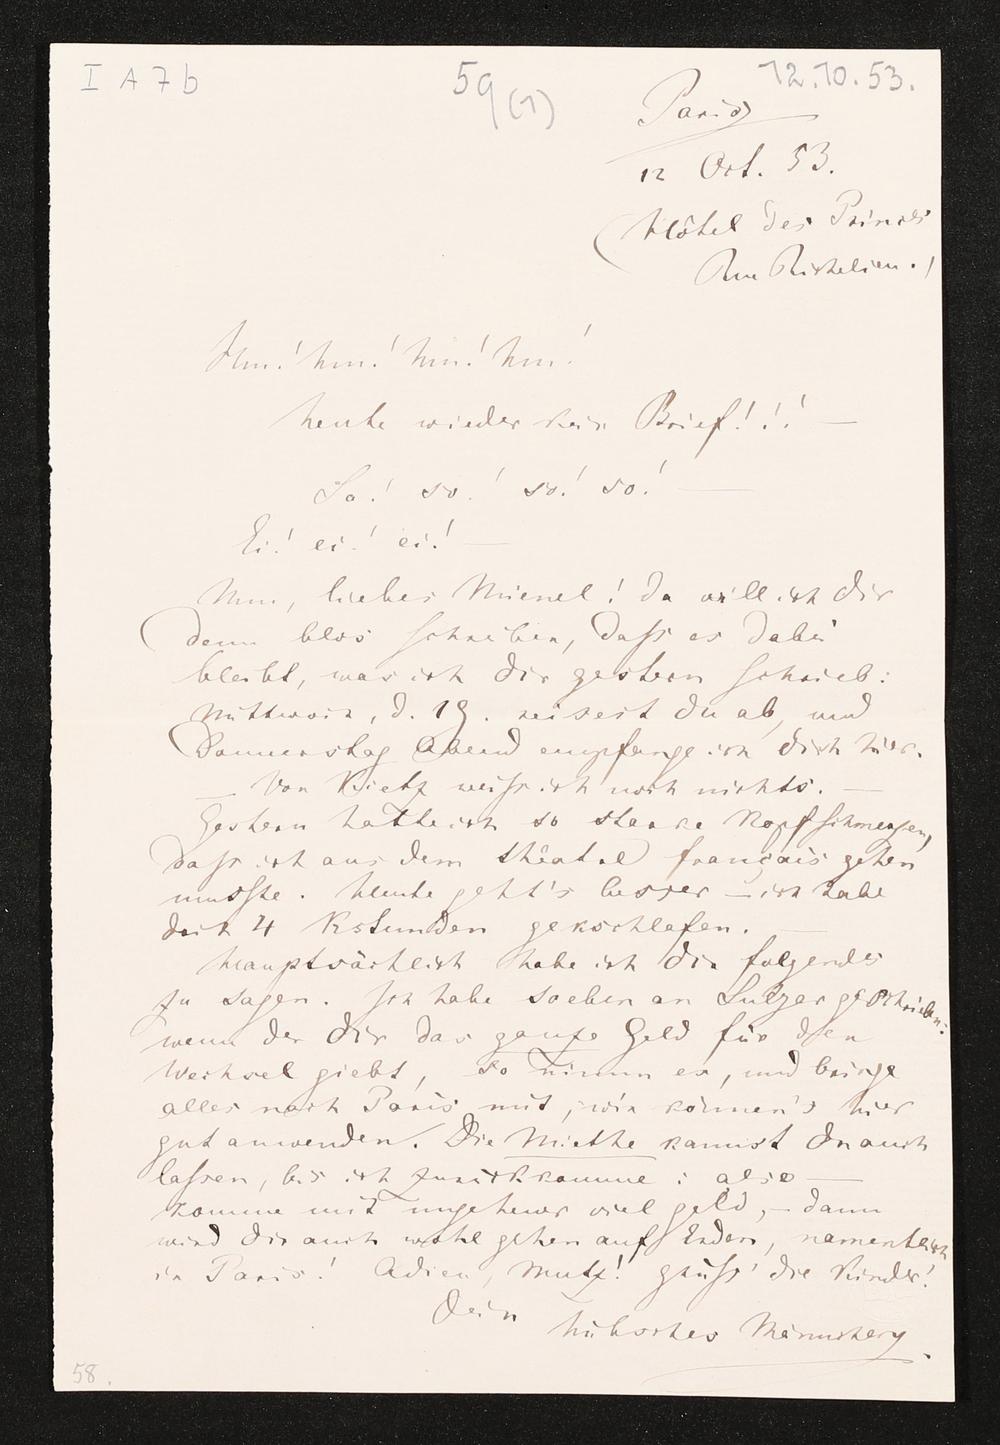 I A 7 b
59 (1)
12.10.53.
Paris
12 Oct. 53.
(Hôtel des Princes
Rue Richelieu.)
Hm! hm! hm! hm!
heute wieder kein Brief!!! —
So! so! so! so! —
Ei! ei! ei! —
Nun, liebes Mienel! Da will ich dir
denn blos schreiben, dass es dabei
bleibt, was ich dir gestern schrieb:
Mittwoch, d. 19. reisest du ab, und
Donnerstag Abend empfange ich dich hier.
— Von Kietz weiss ich noch nichts. —
Gestern hatte ich so starke Kopfschmerzen,
dass ich aus dem théatre français gehen
musste. Heute geht's besser — ich habe
doch 4 Stunden geschlafen. —
Hauptsächlich habe ich dir folgendes
zu sagen. Ich habe soeben an Sulzer geschrieben:
wenn der dir das ganze Geld für den
Wechsel giebt, so nimm es, und bringe
alles nach Paris mit; wir können's hier
gut anwenden. Die Miethe kannst du auch
lassen, bis ich zurückkomme: also —
komme mit ungeheuer viel geld, — dann
wird dir auch wohl gehen auf Erden, namentlich
in Paris! Adieu, Mutz! grüss' die Kinder!
Dein
hübsches Männchen.
58.